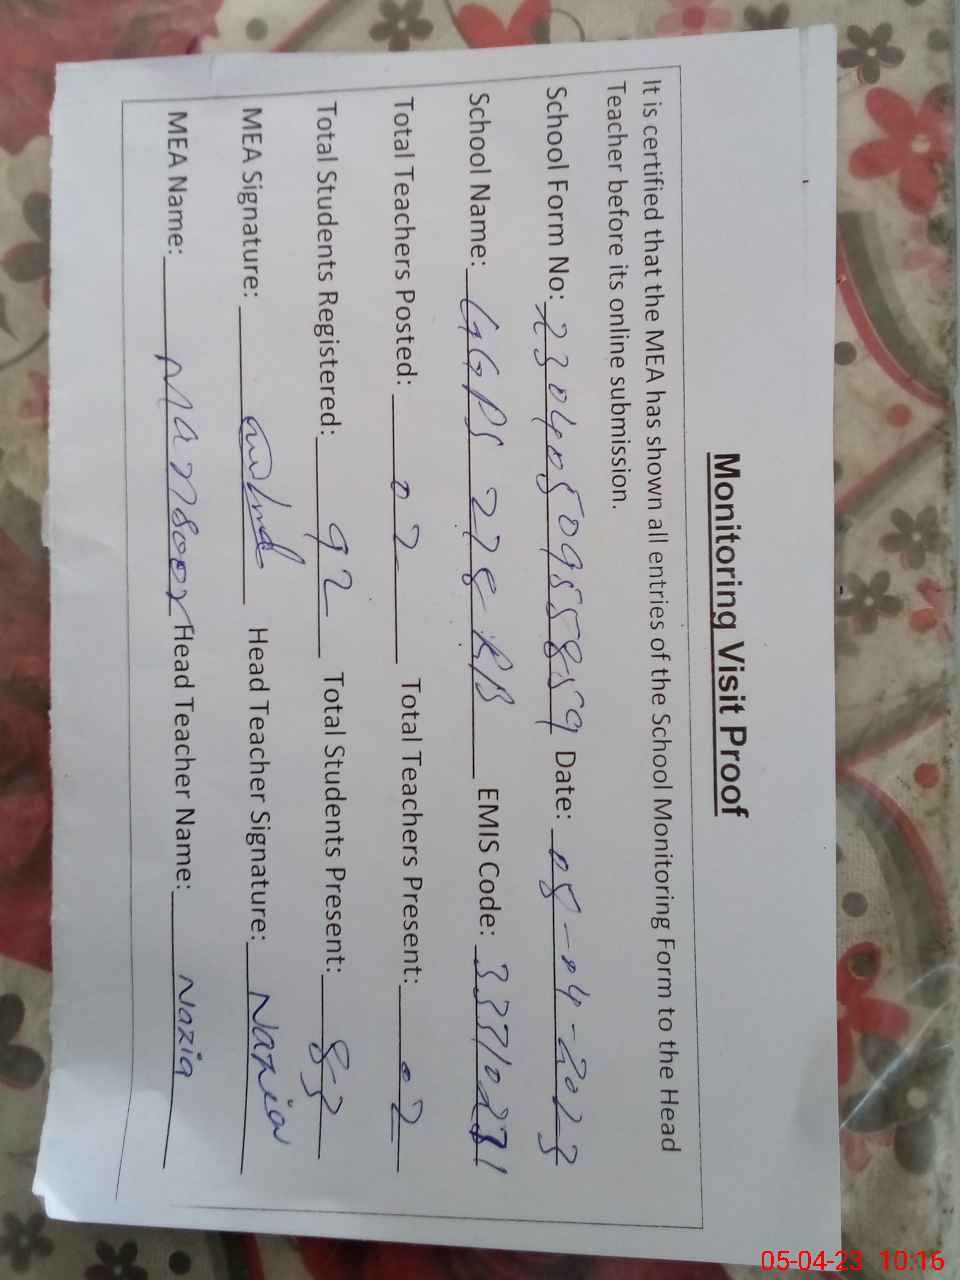 Monitoring Visit Proof
It is certified that the MEA has shown all entries of the School Monitoring Form to the Head
Teacher before its online submission.
School Form No: Date: 05-04-2023
School Name: GGPS 278 RB EMIS Code:
Total Teachers Posted: 02 Total Teachers Present: 02
Total Students Registered: 92 Total Students Present: 83
MEA Signature: Head Teacher Signature: Nazia
MEA Name: Mansoor Head Teacher Name: Nazia
05-04-23 10:16